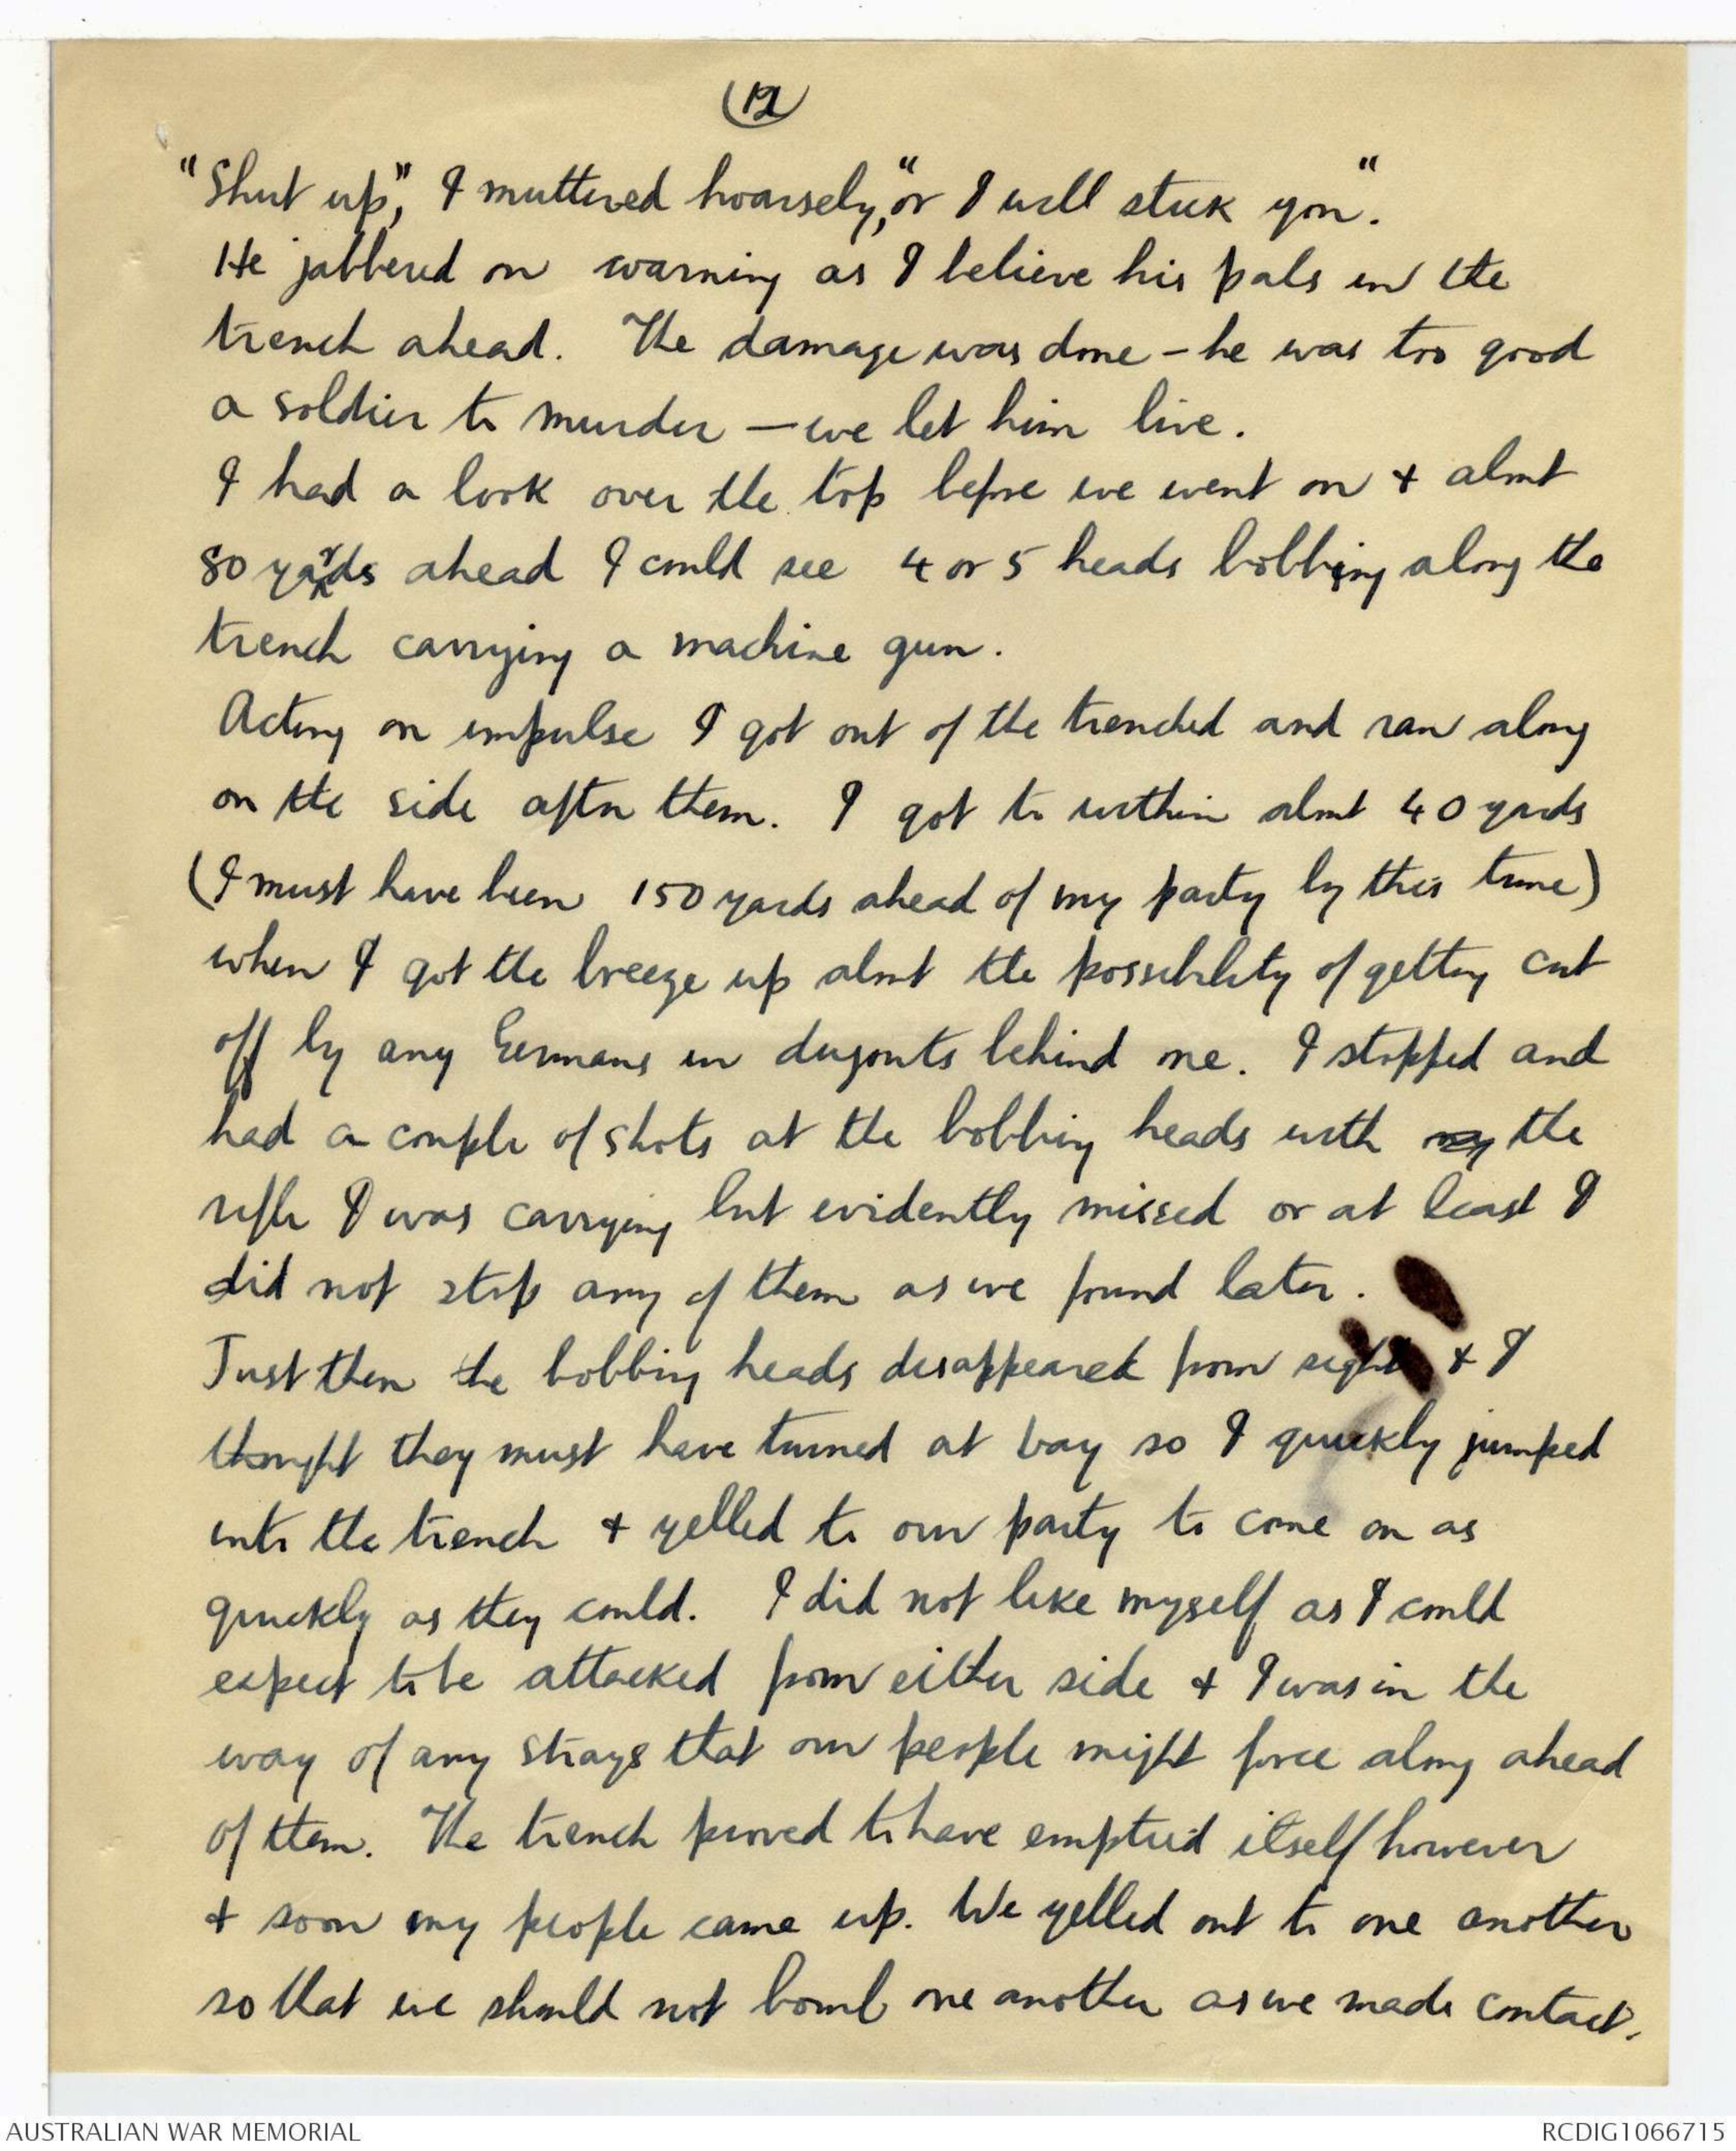 (12)
"Shut up", I muttered hoarsely, "or I will stick you".
He jabbered on warning as I believe his pals in the
trench ahead. The damage was done – he was too good
a soldier to murder – we let him live.
I had a look over the top before we went on + about
80 yards ahead I could see 4 or 5 heads bobbing along the
trench carrying a machine gun.
Acting on impulse I got out of the trenched and ran along
on the side after them. I got to within about 40 yards
(I must have been 150 yards ahead of my party by this time)
when I got the breeze up about the possibility of getting cut
off by any Germans in dugouts behind me. I stopped and
had a couple of shots at the bobbing heads with my the
rifle I was carrying but evidently missed or at least I
did not stop any of them as we found later.
Just then the bobbing heads disappeared from sight + I
thought they must have turned at bay so I quickly jumped
into the trench + yelled to our party to come on as
quickly as they could. I did not like myself as I could
expect to be attacked from either side + I was in the
way of any strays that our people might force along ahead
of them. The trench proved to have emptied itself however
+ soon my people came up. We yelled out to one another
so that we should not bomb one another as we made contact.
AUSTRALIAN WAR MEMORIAL
RCDIG1066715